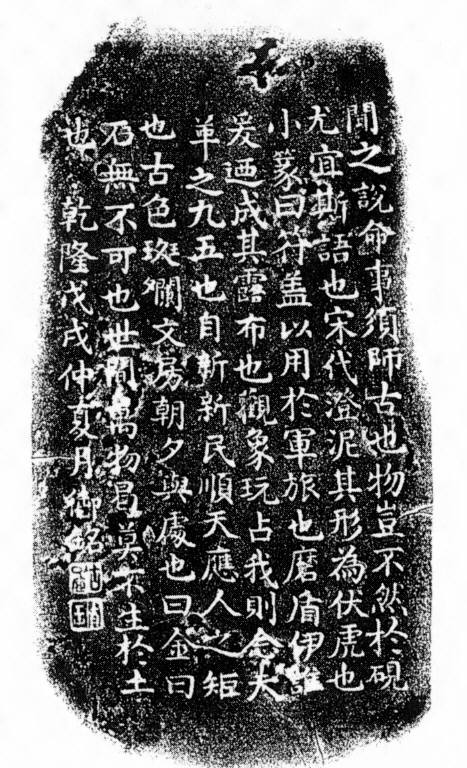 聞之說命事須師古也物豈不然於硯
尤宜斯語也宋代澄泥其形為伏虎也
小篆曰符盖以用於軍旅也磨盾伊誰
爰迺成其露布也觀象玩占我則念夫
革之九五也自新新民順天應人之矩
也古色斑斕文房朝夕與處也曰金曰
石無不可也世間萬物曷莫不生於土
也 乾隆戊戌仲夏月御銘